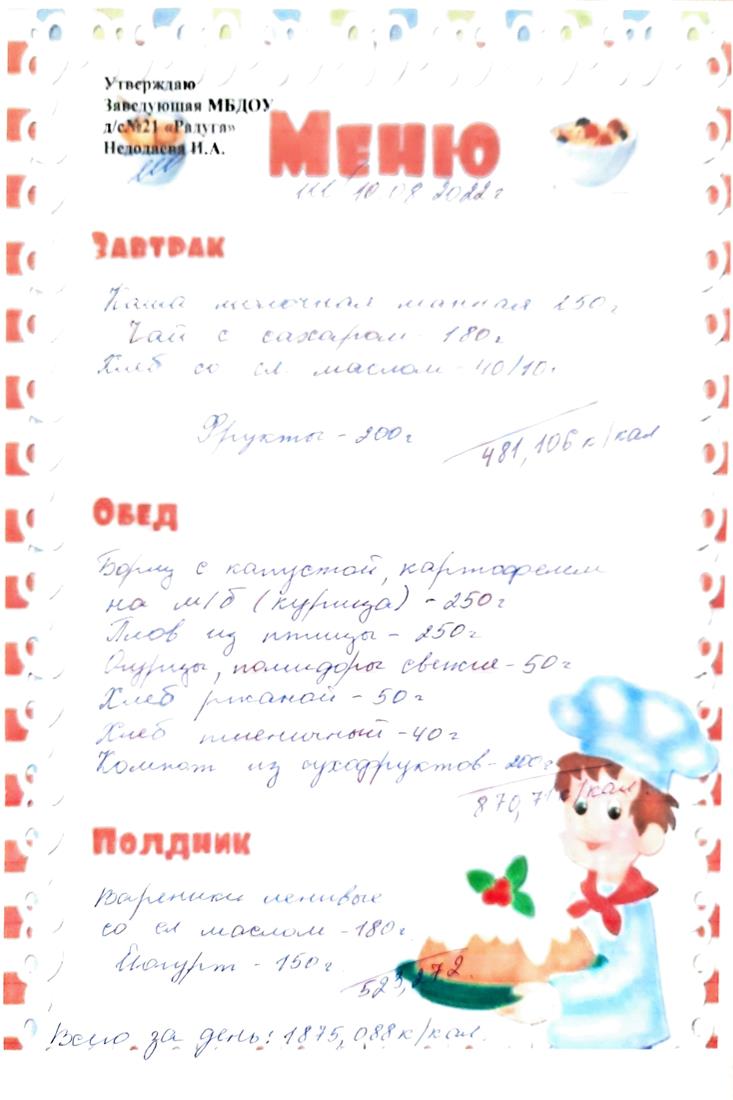 Утверждаю
Заведующая МБДОУ
д/с№21 «Радуга»
Недодаева И.А.
Меню
10 08 2022г
Завтрак
Каша молочная манная 250г
Чай с сахаром 180г
Хлеб со сл. маслом - 40/10г
Фрукты - 200г
481,106 к/кал
Обед
Борщ с капустой, картофелем
на м/б (курица) - 250г
Плов из птицы - 250г
Огурцы, помидоры свежие - 50г
Хлеб ржаной - 50г
Хлеб пшеничный - 40г
Компот из сухофруктов - 200г
870,71 к/кал
Полдник
Вареники ленивые
со сл маслом - 180г
Йогурт - 150г
523,272
Всего за день: 1875,088 к/кал.